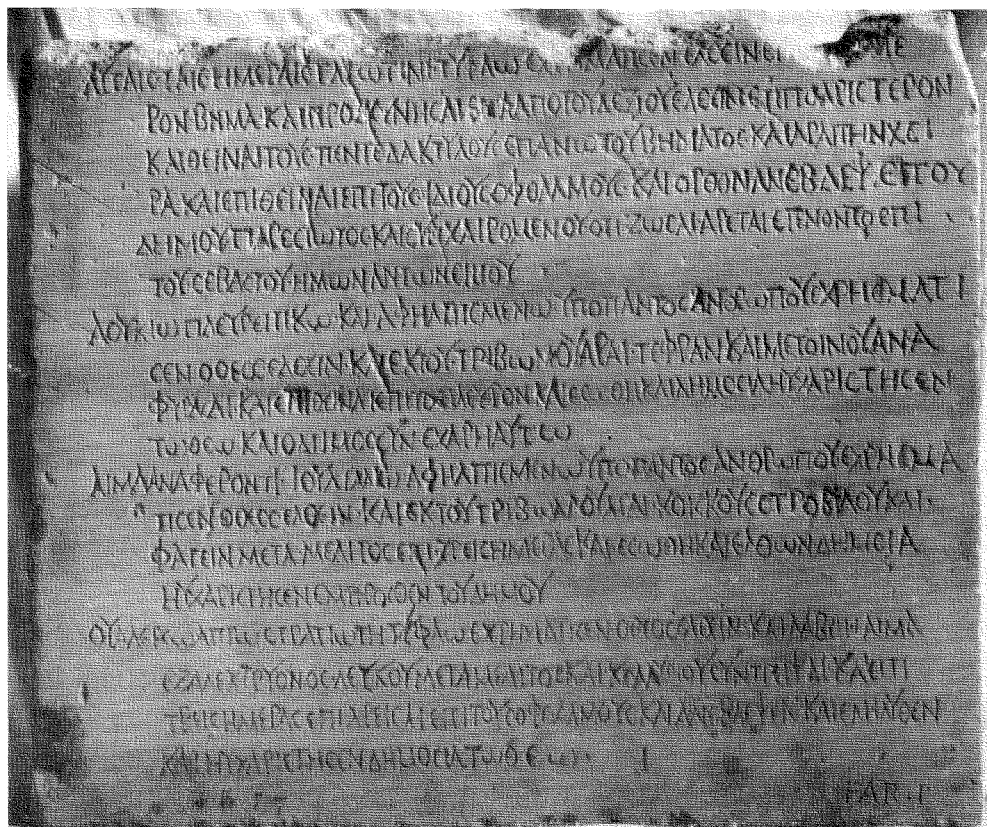 ΑΥΤΑΙϹ ΤΑΙϹ ΗΜΕΡΑΙϹ ΓΑΙΩ ΤΙΝΙ ΤΥΦΛΩ ΕΧΡΗΜΑΤΙϹΕΝ ΕΛΘΕΙΝ ΙΕ
ΡΟΝ ΒΗΜΑ ΚΑΙ ΠΡΟϹΚΥΝΗϹΑΙ ΕΙΤΑ ΑΠΟ ΤΟΥ ΔΕΞΙΟΥ ΕΛΘΕΙΝ ΕΠΙ ΤΟ ΑΡΙϹΤΕΡΟΝ
ΚΑΙ ΘΕΙΝΑΙ ΤΟΥϹ ΠΕΝΤΕ ΔΑΚΤΥΛΟΥϹ ΕΠΑΝΩ ΤΟΥ ΒΗΜΑΤΟϹ ΚΑΙ ΑΡΑΙ ΤΗΝ ΧΕΙ
ΡΑ ΚΑΙ ΕΠΙΘΕΙΝΑΙ ΕΠΙ ΤΟΥϹ ΙΔΙΟΥϹ ΟΦΘΑΛΜΟΥϹ ΚΑΙ ΟΡΘΟΝ ΑΝΕΒΛΕΨΕ ΤΟΥ
ΔΗΜΟΥ ΠΑΡΕϹΤΩΤΟϹ ΚΑΙ ϹΥΝΧΑΙΡΟΜΕΝΟΥ ΟΤΙ ΖΩϹΑΙ ΑΡΕΤΑΙ ΕΓΕΝΟΝΤΟ ΕΠΙ
ΤΟΥ ϹΕΒΑϹΤΟΥ ΗΜΩΝ ΑΝΤΩΝΕΙΝΟΥ
ΛΟΥΚΙΩ ΠΛΕΥΡΕΙΤΙΚΩ ΚΑΙ ΑΦΗΛΠΙϹΜΕΝΩ ΥΠΟ ΠΑΝΤΟϹ ΑΝΘΡΩΠΟΥ ΕΧΡΗϹΜΑΤΙ
ϹΕΝ Ο ΘΕΟϹ ΕΛΘΕΙΝ ΚΑΙ ΕΚ ΤΟΥ ΤΡΙΒΩΜΟΥ ΑΡΑΙ ΤΕΦΡΑΝ ΚΑΙ ΜΕΤ ΟΙΝΟΥ ΑΝΑ
ΦΥΡΑϹΑΙ ΚΑΙ ΕΠΙΘΕΙΝΑΙ ΕΠΙ ΤΟ ΠΛΕΥΡΟΝ ΚΑΙ ΕϹΩΘΗ ΚΑΙ ΔΗΜΟϹΙΑ ΗΥΧΑΡΙϹΤΗϹΕΝ
ΤΩ ΘΕΩ ΚΑΙ Ο ΔΗΜΟϹ ϹΥΝΕΧΑΡΗ ΑΥΤΩ
ΑΙΜΑ ΑΝΑΦΕΡΟΝΤΙ ΙΟΥΛΙΑΝΩ ΑΦΗΛΠΙϹΜΕΝΩ ΥΠΟ ΠΑΝΤΟϹ ΑΝΘΡΩΠΟΥ ΕΧΡΗϹΜΑ
ΤΙϹΕΝ Ο ΘΕΟϹ ΕΛΘΕΙΝ ΚΑΙ ΕΚ ΤΟΥ ΤΡΙΒΩΜΟΥ ΑΡΑΙ ΚΟΚΚΟΥϹ ϹΤΡΟΒΙΛΟΥ ΚΑΙ
ΦΑΓΕΙΝ ΜΕΤΑ ΜΕΛΙΤΟϹ ΕΠΙ ΤΡΕΙϹ ΗΜΕΡΑϹ ΚΑΙ ΕϹΩΘΗ ΚΑΙ ΕΛΘΩΝ ΔΗΜΟϹΙΑ
ΗΥΧΑΡΙϹΤΗϹΕΝ ΕΜΠΡΟϹΘΕΝ ΤΟΥ ΔΗΜΟΥ
ΟΥΑΛΕΡΙΩ ΑΠΡΩ ϹΤΡΑΤΙΩΤΗ ΤΥΦΛΩ ΕΧΡΗΜΑΤΙϹΕΝ Ο ΘΕΟϹ ΕΛΘΕΙΝ ΚΑΙ ΛΑΒΕΙΝ ΑΙΜΑ
ΕΞ ΑΛΕΚΤΡΥΩΝΟϹ ΛΕΥΚΟΥ ΜΕΤΑ ΜΕΛΙΤΟϹ ΚΑΙ ΚΟΛΛΥΡΙΟΥ ϹΥΝΤΡΙΨΑΙ ΚΑΙ ΕΠΙ
ΤΡΕΙϹ ΗΜΕΡΑϹ ΕΠΙΧΡΕΙϹΑΙ ΕΠΙ ΤΟΥϹ ΟΦΘΑΛΜΟΥϹ ΚΑΙ ΑΝΕΒΛΕΨΕΝ ΚΑΙ ΕΛΗΛΥΘΕΝ
ΚΑΙ ΗΥΧΑΡΙϹΤΗϹΕΝ ΔΗΜΟϹΙΑ ΤΩ ΘΕΩ